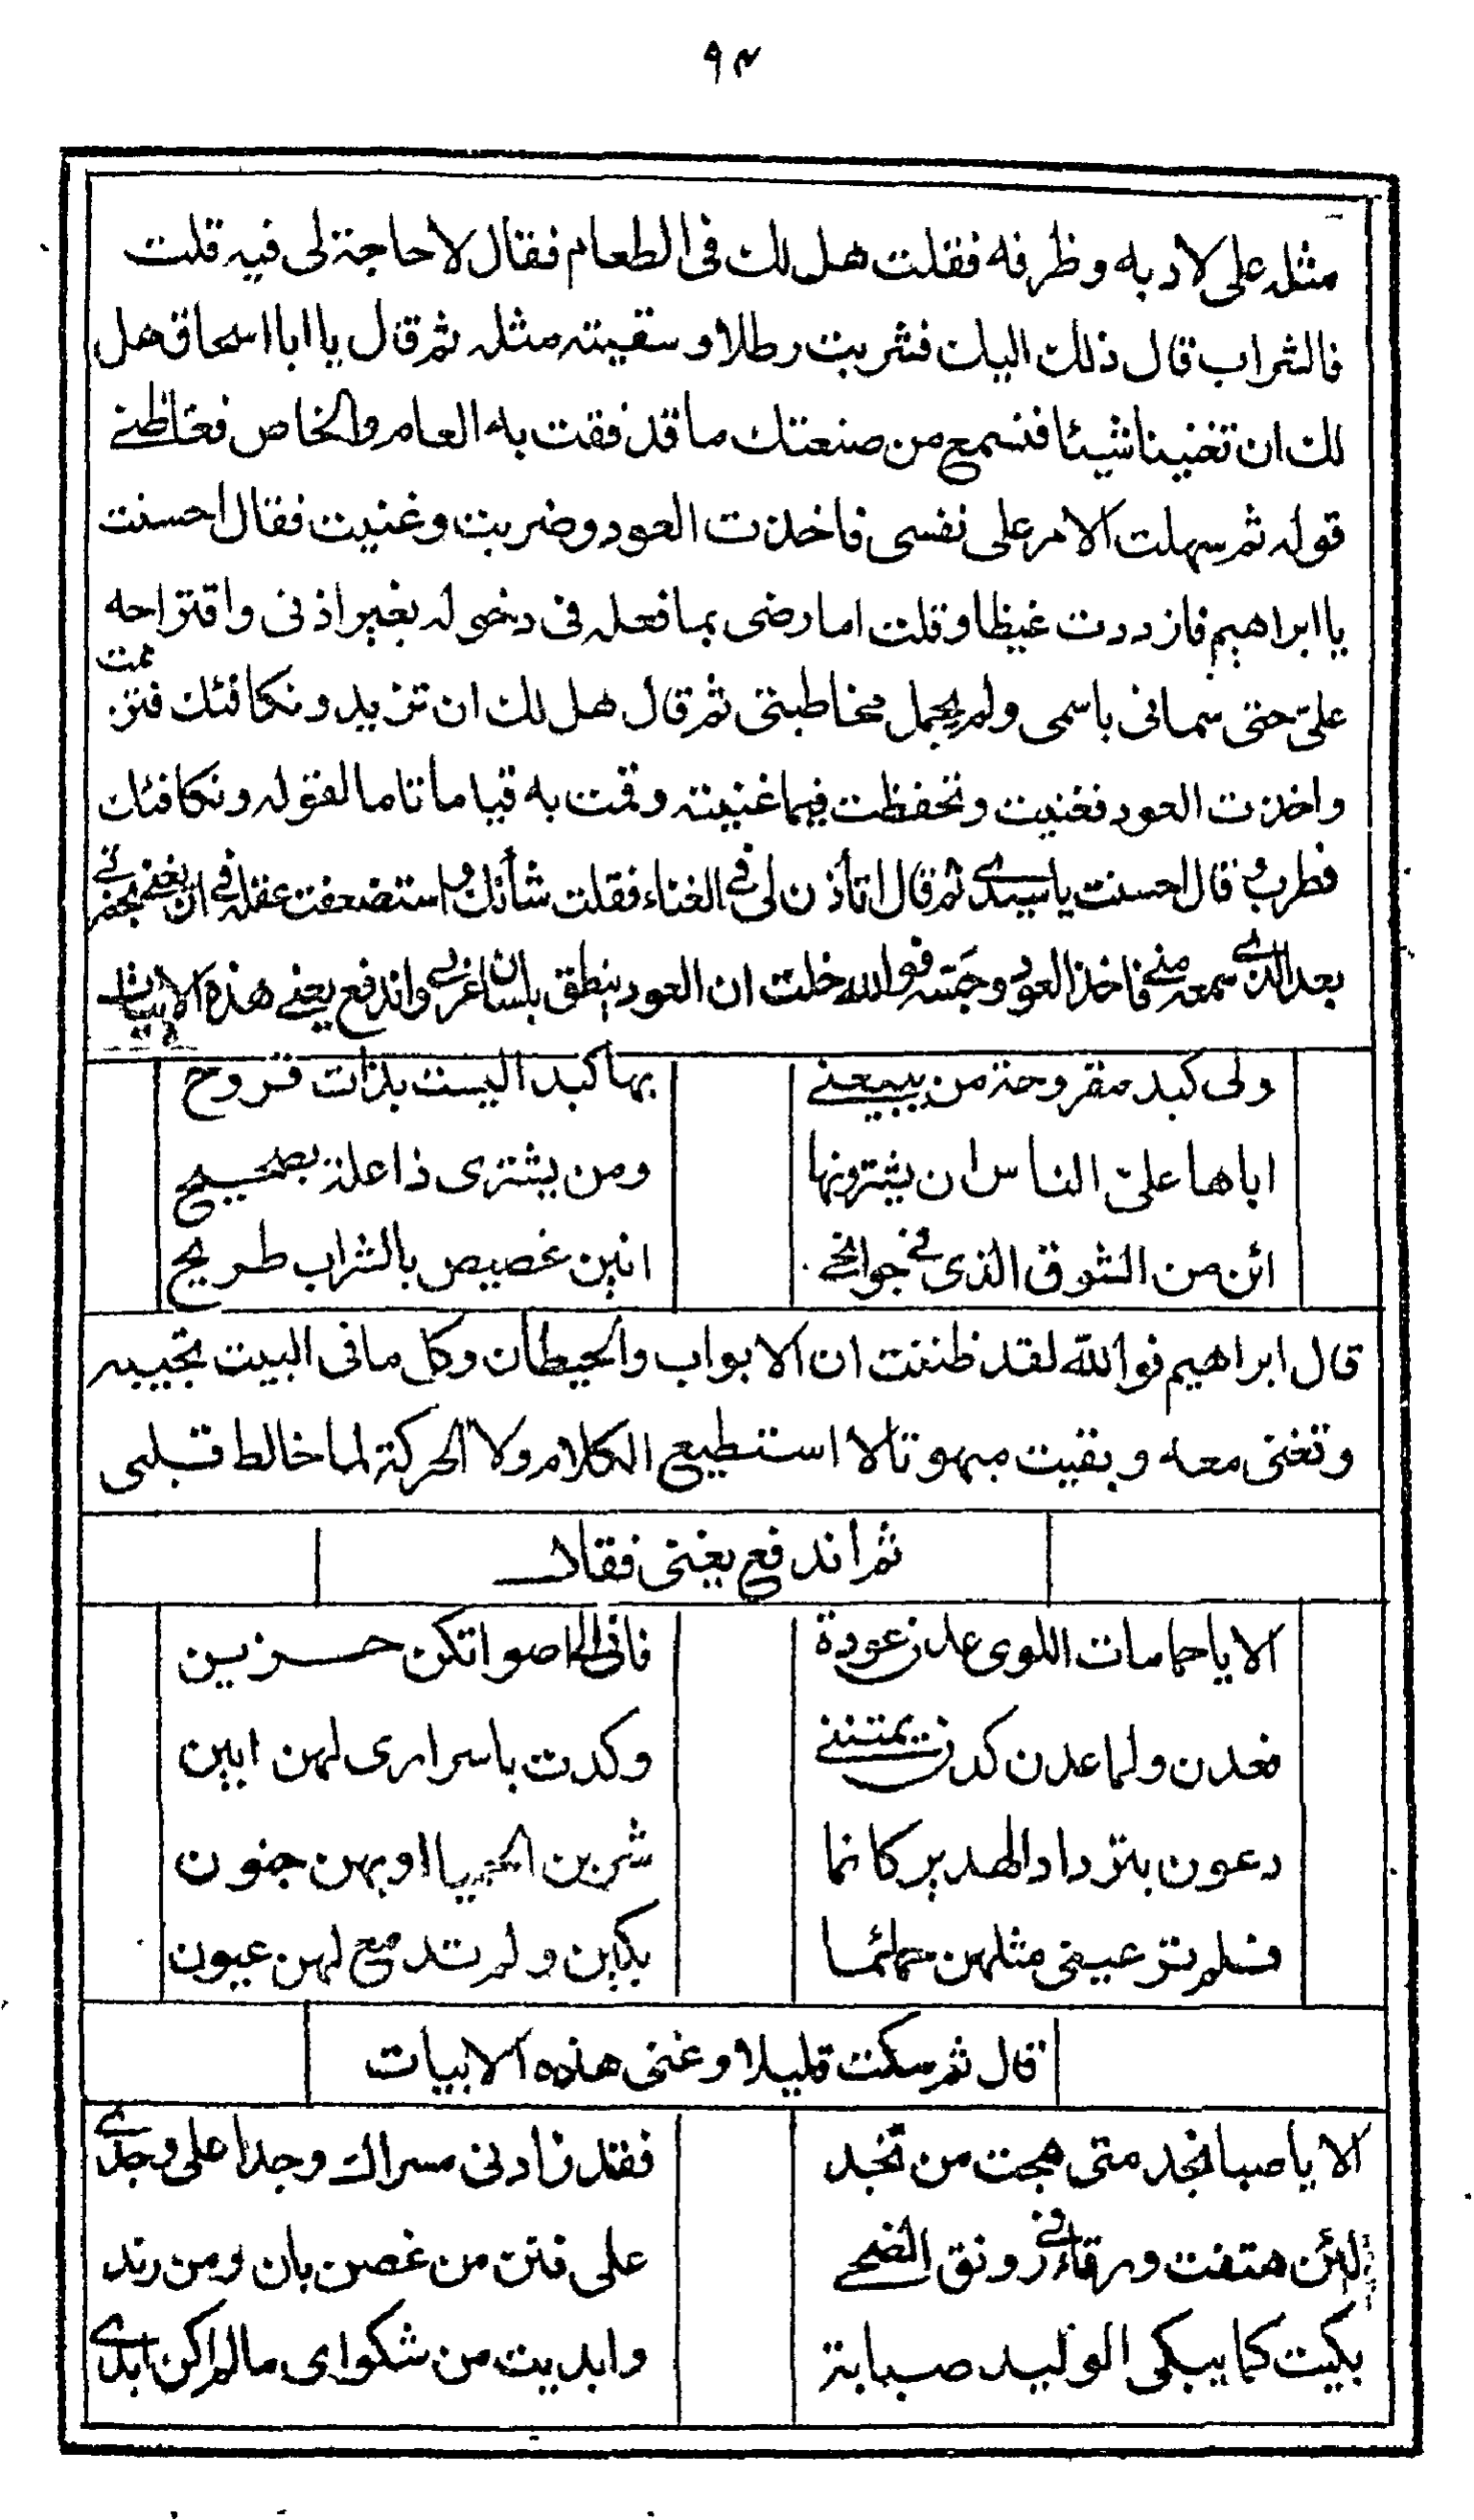 ٩٣
مثله على لادبه وظرفه فقلت هل لك فى الطعام فقال لا حاجة لى فيه قلت
فالشراب قال ذلك اليك فشربت رطلا وسقيته مثله ثم قال يا ابا اسحاق هل
لك ان تغنينا شيئا فنسمع من صنعتك ما قد فقت به العام والخاص فغاظنے
قوله ثم سهلت الامر على نفسى فاخذت العود وضربت وغنيت فقال احسنت
يا ابراهيم فازددت غيظا وقلت اما رضى بما فعله فى دخوله بغير اذنى واقتراحه
علىّ حتى سمانى باسمى ولم يجمل مخاطبتى ثم قال هل لك ان تزيد ونكافئك فتذممت
واخذت العود فغنيت وتحفظت فيما غنيته وقمت به قياما تاما لقوله ونكافئك
فطرب وقال احسنت يا سيدے ثم قال اتأذن لى فے الغناء فقلت شأنك واستضعفت عقله فے ان يغنے بحضرتے
بعد الذے سمعه منے فاخذ العود وجسّه فوالله خلت ان العود ينطق بلسان عربى واندفع يغنے هذه الابيات
ولى كبد مقروحة من يبيعنے بها كبد اليست بذات قروح
اباها علىّ الناس ان يشترونها ومن يشترى ذا علة بصحيح
ائن من الشوق الذى فے جوانحے انين غصيص بالشراب طريح
قال ابراهيم فوالله لقد ظننت ان الابواب والحيطان وكل ما فى البيت تجيبه
وتغنى معه وبقيت مبهوتا لا استطيع الكلام ولا الحركة لما خالط قلبى
ثم اندفع يغنى فقال
الا يا حمامات اللوى عدن عودة فانى الى اصواتكن حزين
فعدن ولما عدن كدن يمتننے وكدت باسرارى لهن ابين
دعون بترداد الهدير كانما شربن الحميا او بهن جنون
فلم تر عينى مثلهن حمائما بكين ولم تدمع لهن عيون
قال ثم سكت قليلا وغنى هذه الابيات
الا يا صبا نجد متى هجت من نجد فقد زادنى مسراك وجدا على وجدے
لئن هتفت ورقاء فے رونق الضحے على فنن من غصن بان ومن رند
بكيت كما يبكى الوليد صبابة وابديت من شكواى ما لم اكن ابدے